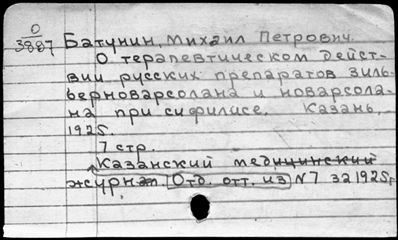 О
3887
Батунин, Михаил Петрович.
О терапевтическом дейст-
вии русских препаратов зиль-
берноварсолана и новарсола-
на при сифилисе. Казань,
1925.
7 стр.
Казанский медицинский
журнал. Отд. отт. из N7 за 1925г.